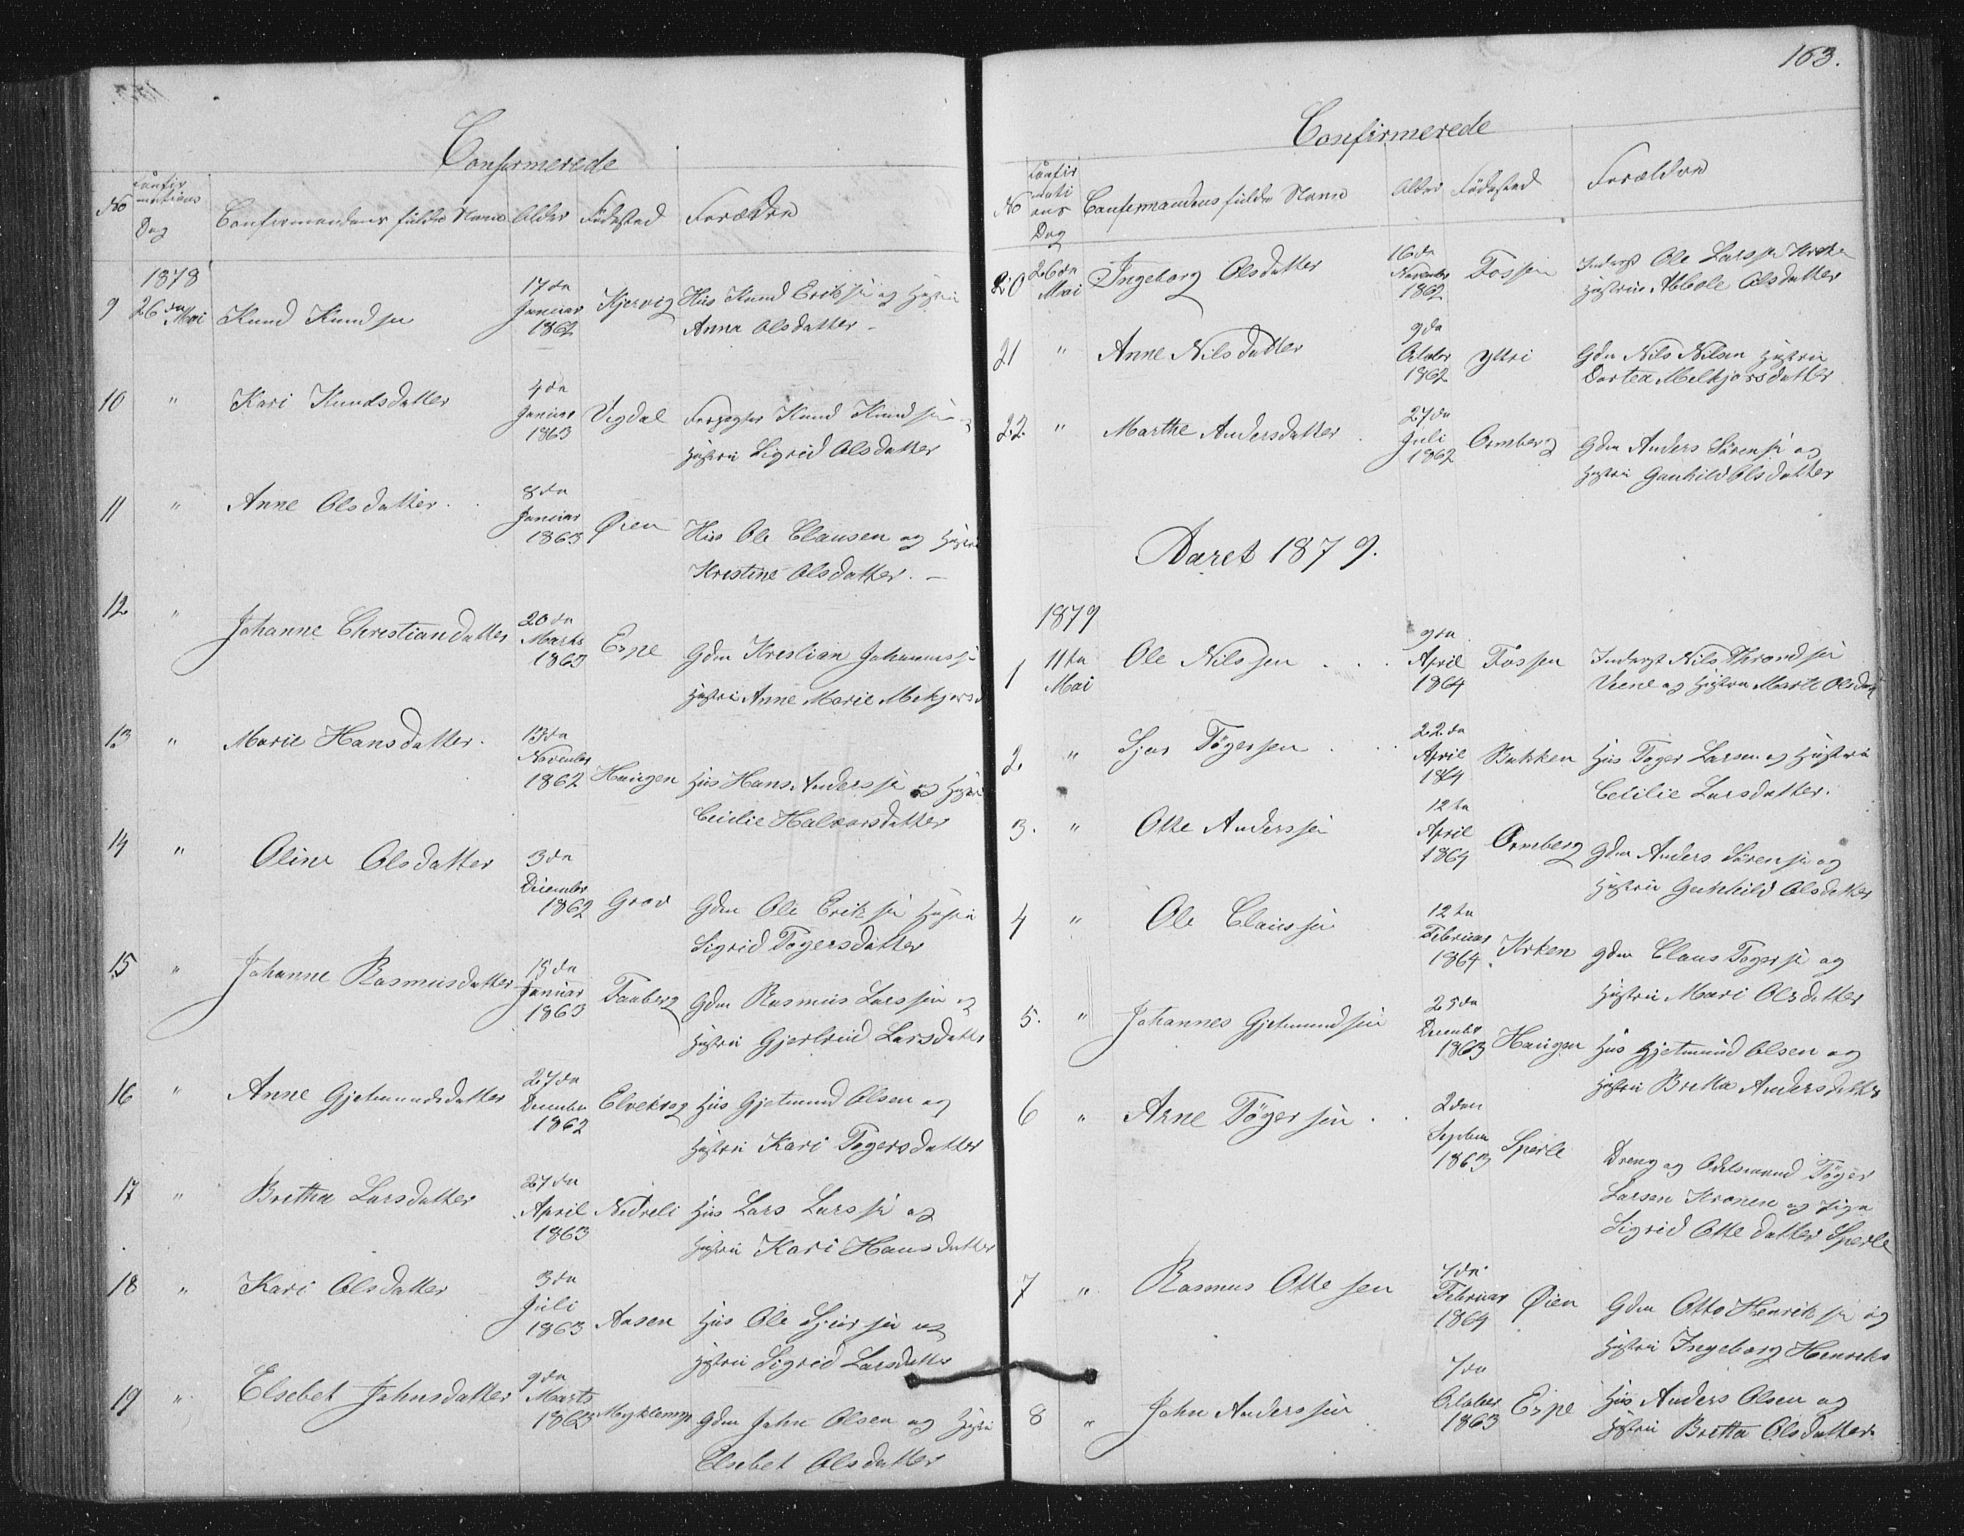 Confirmerede
No Confirmations Dag Confirmandens fulde Navn Alder Födested Forældre
1878
9 26da Mai Knud Knudsen 17da Januar 1862 Kjørvig Hus Knud Eriksen og Hustru
Anna Olsdatter
10 " Kari Knudsdatter 4da Januar 1863 Vigdal Knud Knudsen
Hustru Sigrid Olsdatter
11 " Anne Olsdatter 8da Januar 1863 Øien Hus Ole Clausen og Hustru
Kristine Olsdatter
12 " Johanne Christiandatter 20da Marts 1863 Espe Gdm Kristian Johannessen
Hustru Anne Marie Mekjorsd
13 " Marie Hansdatter 13da November 1862 Haugen Hus Hans Anderssen og Hustru
Cecilie Halvorsdatter
14 " Oline Olsdatter 3da December 1862 Grov Gdm Ole Eriksen Hustru
Sigrid Togersdatter
15 " Johanne Rasmusdatter 15da Januar 1863 Faaberg Gdm Rasmus Larssen og
Hustru Gjertrud Larsdatter
16 " Anne Gjetmundsdatter 27da December 1862 Elvekrog Hus Gjetmund Olsen og
Hustru Kari Togersdatter
17 " Bretha Larsdatter 27da April 1863 Nedreli Hus Lars Larssen og
Hustru Kari Hansdatter
18 " Kari Olsdatter 3da Juli 1863 Aasen Hus Ole Sjurssen og
Hustru Sigrid Larsdatter
19 " Elsebet Johnsdatter 9da Marts 1863 Myklemyr Gdm John Olsen og Hustru
Elsebet Olsdatter
163.
Confirmerede
No Confirmations Dag Confirmandens fulde Navn Alder Födested Forældre
20 26da Mai Ingeborg Olsdatter 16da November 1862 Fossen Inderst Ole Larssen
Hustru Abbole Olsdatter
21 " Anne Nilsdatter 9da October 1862 Ytri Gdm Nils Nilsen Hustru
Dortea Melkjorsdatter
22. " Marthe Andersdatter 27da Juli 1862 Ormberg Gdm Anders Sörensen og
Hustru Gunhild Olsdatter
Aaret 1879.
1879
1 11ta Mai Ole Nilssen 9da April 1864 Fossen Inderst Nils Throndsen
og Hustru Marte Olsdatt
2. " Sjur Tögersen 22da April 1864 Bakken Hus Toger Larsen og Hustru
Cecilie Larsdatter.
3. " Otte Anderssen 12ta April 1864 Ormberg Gdm Anders Sörensen og
Hustru Gunhild Olsdatter
4 " Ole Claussen 12ta Februar 1864 Krken Gdm Claus Togersen og
Hustru Mari Olsdatter
5. " Johannes Gjetmundsen 25da December 1863 Haugen Hus Gjetmund Olsen og
Hustru Bretta Andersdatter
6 " Arne Tögersen 2den Septem 1863 Sperle Dreng og Töger
Larsen Kronen og Pige
Sigrid Ottedatter Sperle
7 " Rasmus Ottesen 7da Februar 1864 Øien Gdm Otto Henriksen og
Hustru Ingeborg Henriks
8 " John Anderssen 7da October 1863 Espe Hus Anders Olsen og
Hustru Bretta Olsdatter